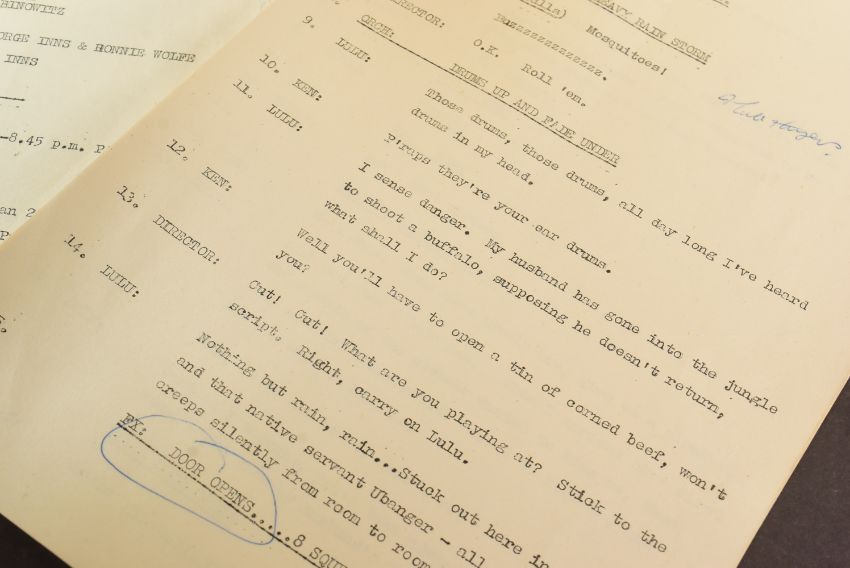 BINOWITZ
ORGE INNS & RONNIE WOLFE
INNS
-8.45 p.m.
an 2
HEAVY RAIN STORM
DIRECTOR: Mosquitoes!
Buzzzzzzzzzzzzz.
ORCH:
O.K. Roll 'em.
DRUMS UP AND FADE UNDER
9. LULU: Those drums, those drums, all day long I've heard
drums in my head.
10. KEN: P'raps they're your ear drums.
11. LULU: I sense danger. My husband has gone into the jungle
to shoot a buffalo, supposing he doesn't return,
what shall I do?
12. KEN: Well you'll have to open a tin of corned beef, won't
you?
13. DIRECTOR: Cut! Cut! What are you playing at? Stick to the
script. Right, carry on Lulu.
14. LULU: Nothing but rain, rain...Stuck out here in
and that native servant Ubanger - all
creeps silently from room to room
FX: DOOR OPENS.....8